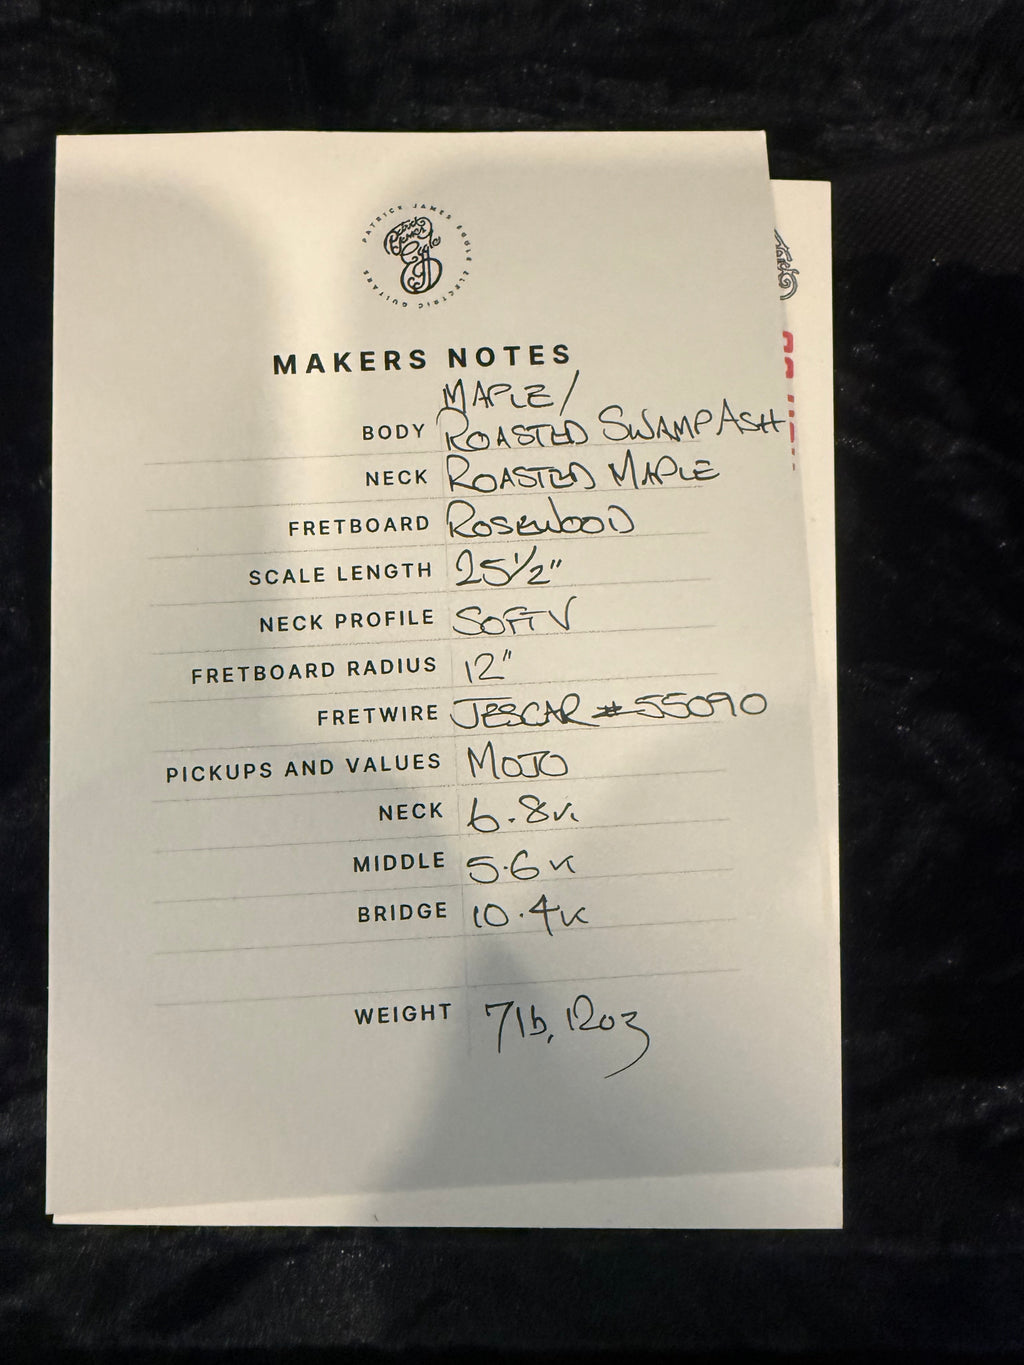 PATRICK JAMES EGGLE ELECTRIC GUITARS
Patrick James Eggle
MAKERS NOTES
MAPLE/
BODY ROASTED SWAMP ASH
NECK ROASTED MAPLE
FRETBOARD ROSEWOOD
SCALE LENGTH 25 1/2"
NECK PROFILE SOFT V
FRETBOARD RADIUS 12"
FRETWIRE JESCAR #55090
PICKUPS AND VALUES MOJO
NECK 6.8K
MIDDLE 5.6K
BRIDGE 10.4K
WEIGHT 7lb, 12oz